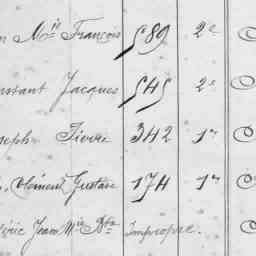 n M.ie François 589 2e
nstant Jacques 545 2e
seph Pierre 342 1r
, Clément Gustave 174 1r
éric Jean M.ie B.te Impropre.